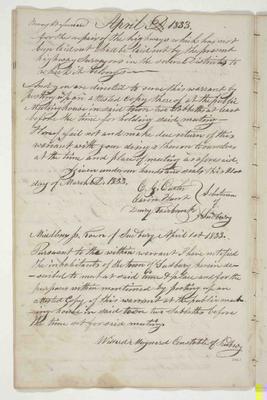 April 1st 1833.
for the repair of the highways which has not
been laid out shall be laid out by the present
highway Surveyors in the several Districts to
which it belongs
And you are directed to serve this warrant by
posting up an attested Copy thereof at the public
Meeting house in said town two Sabbaths at least
before the time for holding said meeting
Hereof fail not and make due return of this
warrant with your doings thereon to ourselves
at the time and place of meeting as aforesaid
Given under our hands and seals this
day of March A.D. 1833.
Selectmen
of
Sudbury
Middlesex ss. Town of Sudbury April 1st 1833.
Pursuant to the within warrant I have notified
the inhabitants of the town of Sudbury herein des-
cribed to meet at said time & place and for the
purposes within mentioned by posting up an
attested Copy of this warrant at the public meet-
ing house in said town two Sabbaths before
the time set for said meeting
Maynard Constable of Sudbury